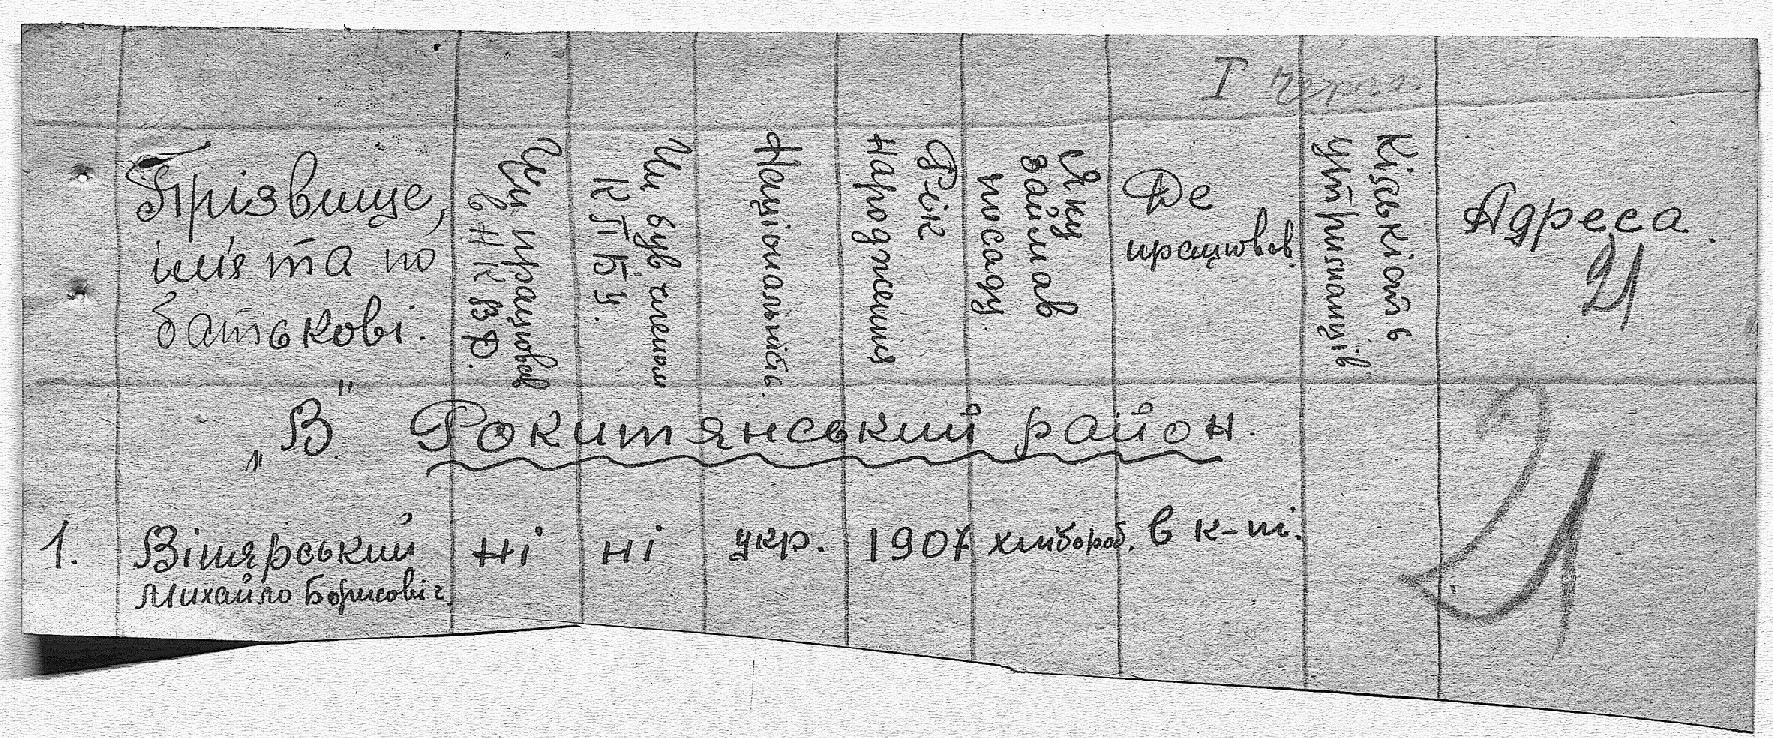 I черга.
Прізвище,
ім'я та по
батькові.
Чи працював
в Н К В Д.
Чи був членом
К П б У.
Національність.
Рік
народження
Яку
займав
посаду.
Де
працював.
Кількість
утриманців
Адреса.
21
„В" Рокитянський район.
1. Вітярський ні ні укр. 1907 хлібороб. в к-ті.
Михайло Борисовіч.
21